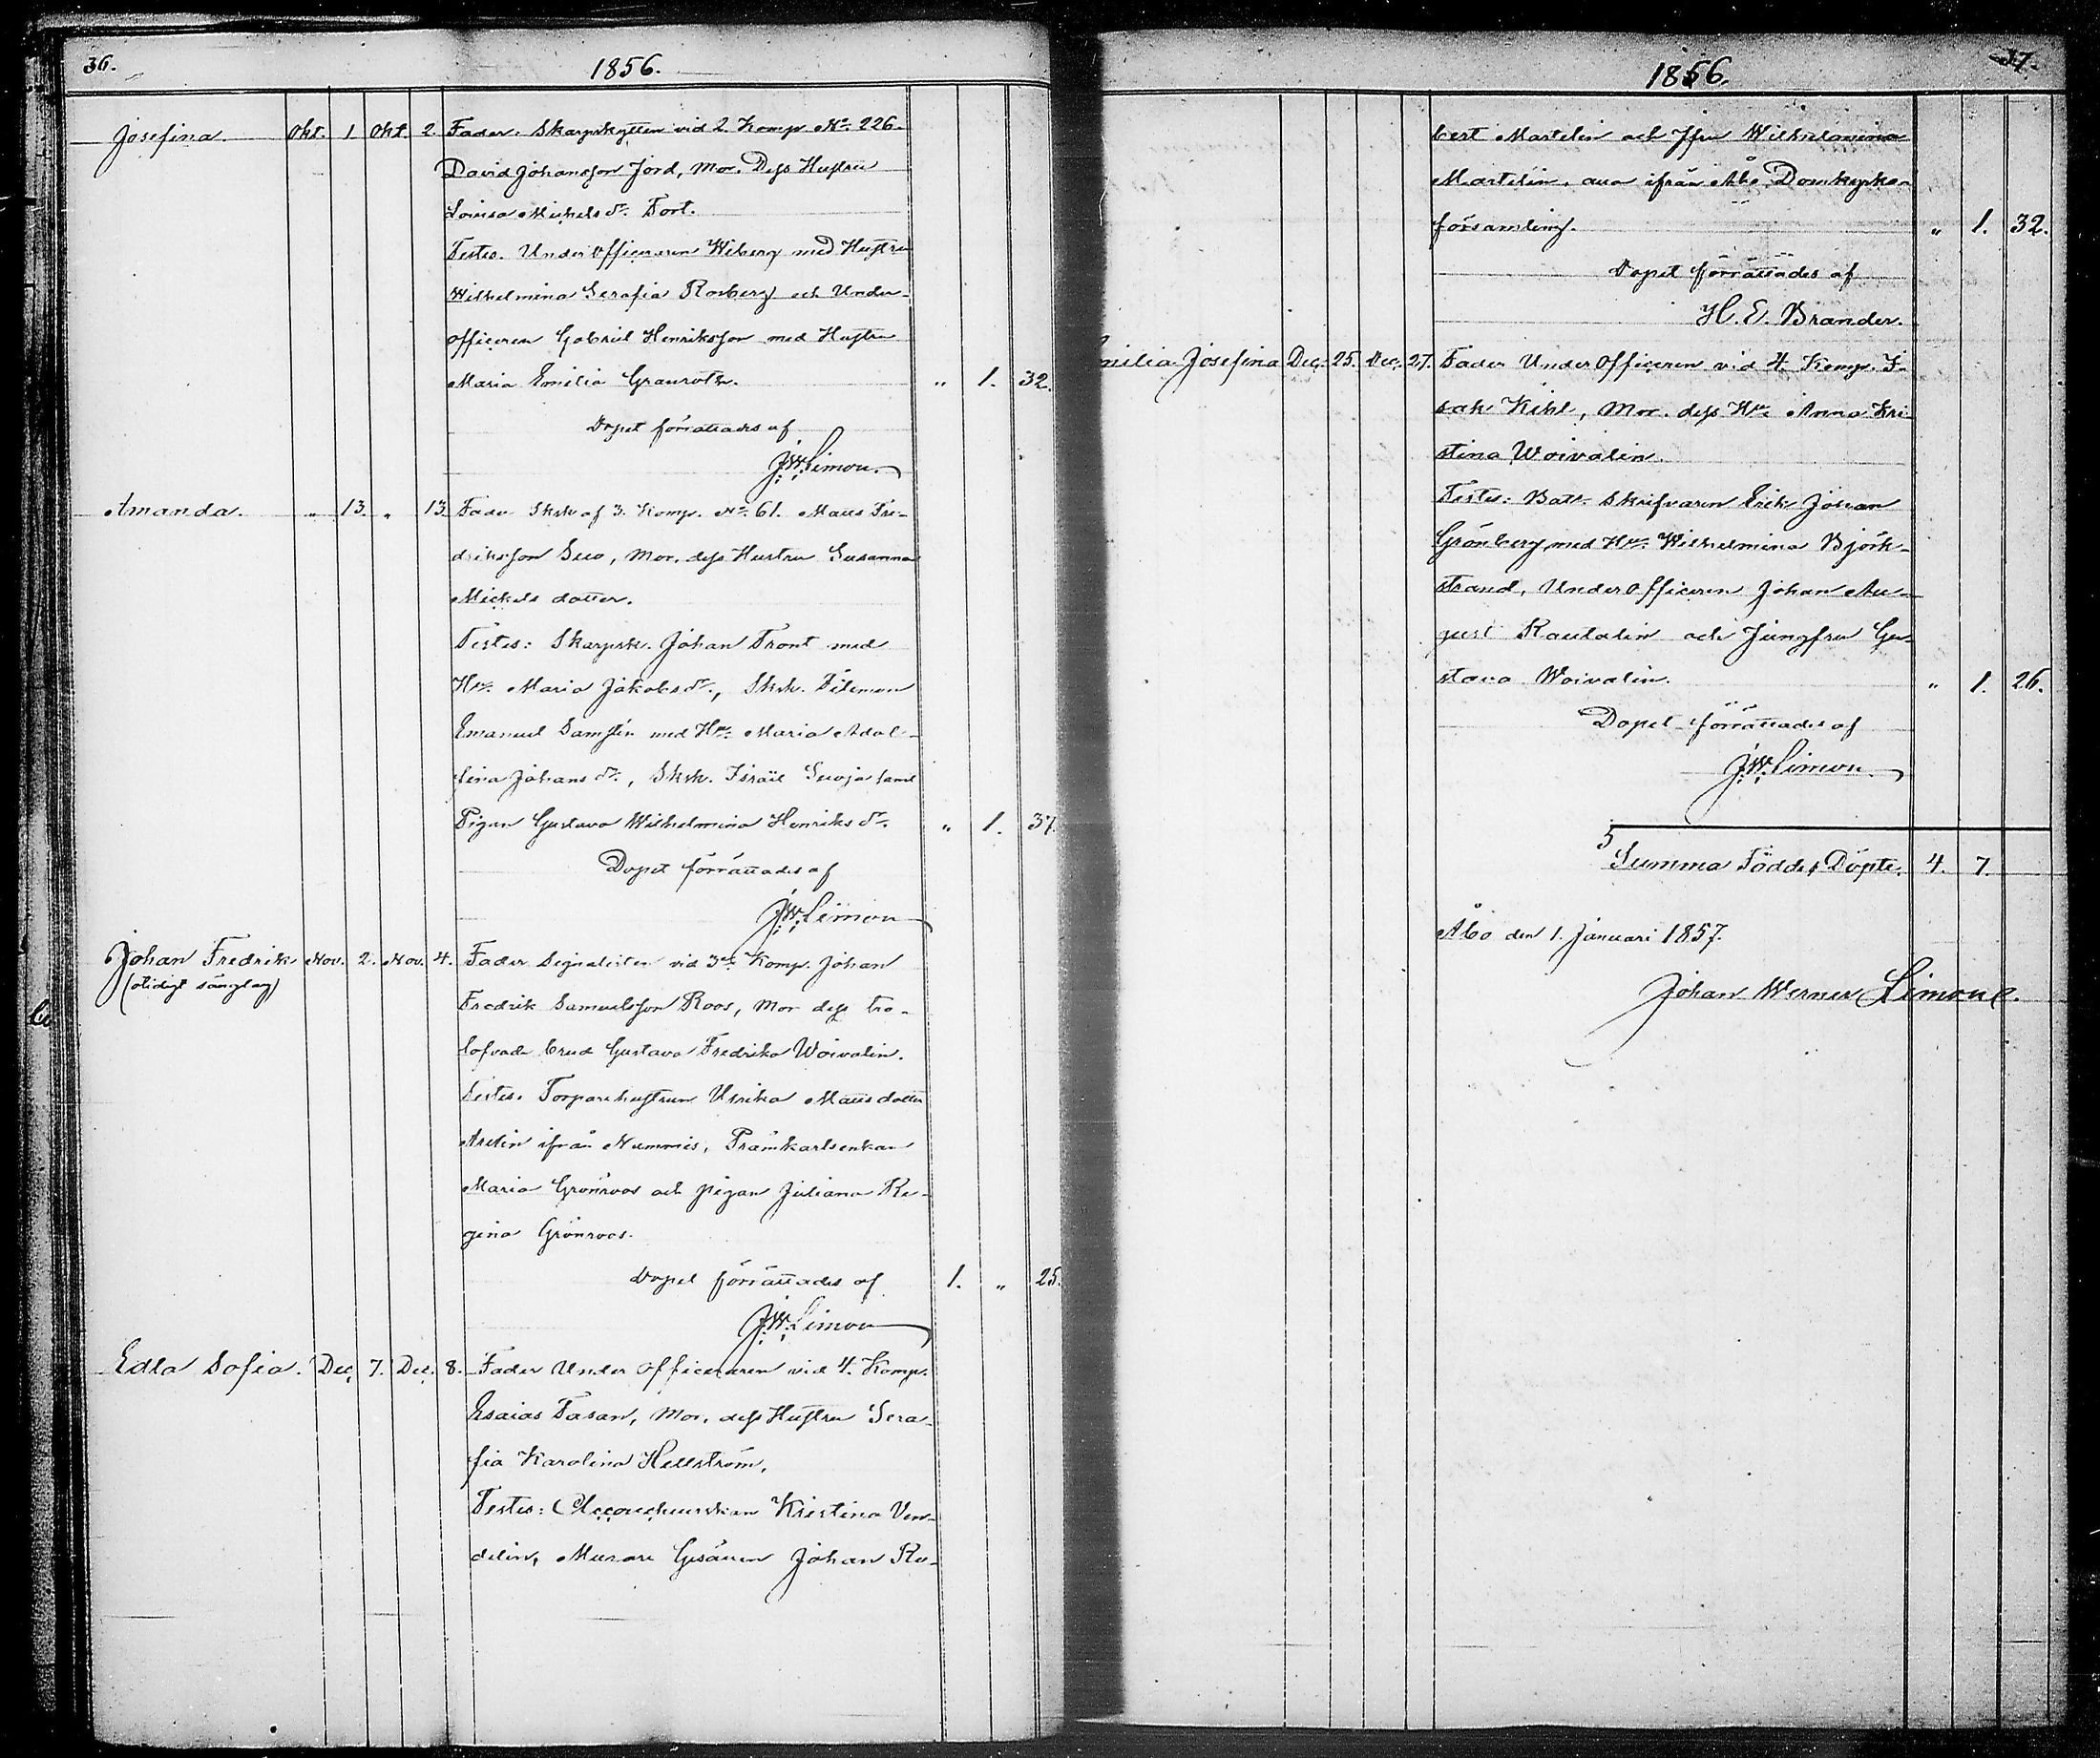 36.
1856.
Josefina. Okt. 1 Okt. 2. Fader. Skarpskytten vid 2. Komp. No. 226.
David Johansson Jord, Mor. Dess Hustru
Lovisa Mickelsdr. Fort.
Testes. Under Officeraren Wiberg med Hustru
Wilhelmina Serafia Rosberg och Under-
officeren Gabriel Henriksson med Hustru
Maria Emilia Granroth. " 1. 32.
Dopet förrättades af
J. W. Limon.
Amanda. " 13. " 13. Fader Sksk af 3. Komp. No. 61. Mats Fre-
driksson Suo, Mor. dess Hustru Susanna
Mickels dotter.
Testes: Skarpsk. Johan Front med
Hu. Maria Jakobsdr., Sksk. Fileman
Emanuel Samstén med Hu. Maria Adol-
fina Johansdr., Sksk. Israel Suoja samt
Pigan Gustava Wilhelmina Henriksdr. " 1. 37.
Dopet förrättades af
J. W. Limon
Johan Fredrik Nov. 2. Nov. 4. Fader Signalisten vid 3e Komp. Johan
(otidigt sänglag) Fredrik Samuelsson Roos, Mor dess tro-
lofvade brud Gustava Fredrika Woivalin.
Testes. Torparehustrun Ulrika Matsdotter
ifrån Nummis, Pråmkarlsenkan
Maria Grönroos och pigan Juliana Re-
gina Grönroos.
Dopet förrättades af 1. " 25.
J. W. Limon
Edla Sofia. Dec. 7. Dec. 8. Fader Under Officeraren vid 4. Komp.
Esaias Fasan, Mor. dess Hustru Sera-
fia Karolina Hellström.
Testes: Accoucheurskan Kristina Ven-
delin, Murare Gesällen Johan Ro-
37.
1856.
bert Martelin och Jfru Wilhelmina
Martelin, alla ifrån Åbo Domkyrko-
församling. " 1. 32.
Dopet förrättades af
H. E. Brander.
milia Josefina Dec. 25. Dec. 27. Fader Under Officeren vid 4. Komp. I-
sak Kihl, Mor. dess Hu. Anna Kri-
stina Woivalin.
Testes: Batl. Skrifvaren Erik Johan
Grönberg med Hu. Wilhelmina Björk-
strand, Under Officeren Johan Au-
gust Rautalin och Jungfru Gu-
stava Woivalin. " 1. 26.
Dopet förrättades af
J. W. Limon
Summa Födde & Döpte. 4. 7.
Åbo den 1. Januari 1857.
Johan Werner Limon